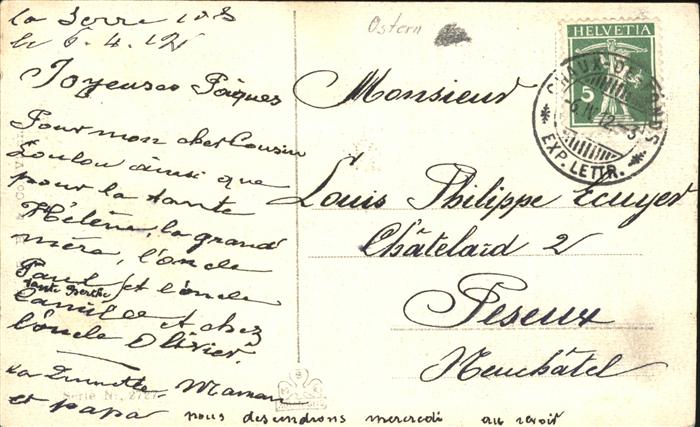 la Serre
le 6.4.12
Joyeuses Pâques
Pour mon cher Cousin
Loulou ainsi que
pour la tante
Hélène, la grand
mère, l'oncle
Paul et l'oncle
tante Berthe
Camille et chez
l'oncle Olivier.
Maman
et papa
nous descendrons mercredi au revoir
Serie Nr. 2727
Ostern
Monsieur
Louis Philippe Ecuyer
Châtelard 2
Peseux
Neuchâtel
HELVETIA
5
CHAUX-DE-FONDS
EXP. LETTR.